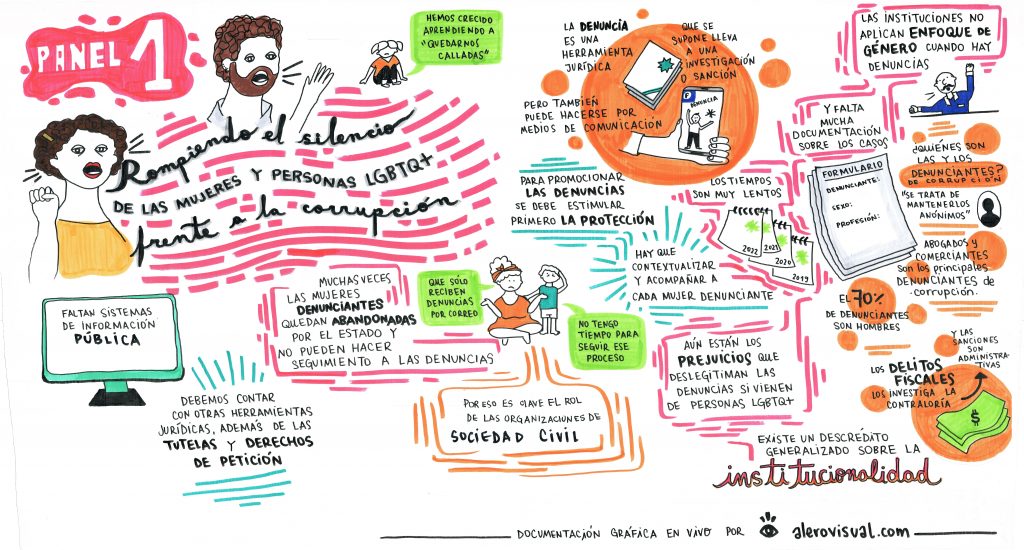 PANEL 1
HEMOS CRECIDO
APRENDIENDO A
"QUEDARNOS
CALLADAS"
Rompiendo el silencio
DE LAS MUJERES Y PERSONAS LGBTQ+
frente a la corrupción
FALTAN SISTEMAS
DE INFORMACIÓN
PÚBLICA
MUCHAS VECES
LAS MUJERES
DENUNCIANTES
QUEDAN ABANDONADAS
POR EL ESTADO Y
NO PUEDEN HACER
SEGUIMIENTO A LAS DENUNCIAS
QUE SÓLO
RECIBEN
DENUNCIAS
POR CORREO
NO TENGO
TIEMPO PARA
SEGUIR ESE
PROCESO
DEBEMOS CONTAR
CON OTRAS HERRAMIENTAS
JURÍDICAS, ADEMÁS DE LAS
TUTELAS Y DERECHOS
DE PETICIÓN
POR ESO ES CLAVE EL ROL
DE LAS ORGANIZACIONES DE
SOCIEDAD CIVIL
LA DENUNCIA
ES UNA
HERRAMIENTA
JURÍDICA
QUE SE
SUPONE LLEVA
A UNA
INVESTIGACIÓN
O SANCIÓN
PERO TAMBIÉN
PUEDE HACERSE POR
MEDIOS DE COMUNICACIÓN
DENUNCIA
PARA PROMOCIONAR
LAS DENUNCIAS
SE DEBE ESTIMULAR
PRIMERO LA PROTECCIÓN
LOS TIEMPOS
SON MUY LENTOS
2022
2021
2020
2019
HAY QUE
CONTEXTUALIZAR
Y ACOMPAÑAR A
CADA MUJER DENUNCIANTE
AÚN ESTÁN LOS
PREJUICIOS QUE
DESLEGITIMAN LAS
DENUNCIAS SI VIENEN
DE PERSONAS LGBTQ+
LAS INSTITUCIONES NO
APLICAN ENFOQUE DE
GÉNERO CUANDO HAY
DENUNCIAS
Y FALTA
MUCHA
DOCUMENTACIÓN
SOBRE LOS CASOS
FORMULARIO
DENUNCIANTE:
SEXO:
PROFESIÓN:
¿QUIÉNES SON
LAS Y LOS
DENUNCIANTES?
DE CORRUPCIÓN
"SE TRATA DE
MANTENERLOS
ANÓNIMOS"
ABOGADOS Y
COMERCIANTES
SON los principales
DENUNCIANTES de
corrupción.
EL 70%
DE DENUNCIANTES
SON HOMBRES
LOS DELITOS
FISCALES
LOS INVESTIGA LA
CONTRALORÍA
Y LAS
SANCIONES
SON
ADMINISTRA-
TIVAS
$
EXISTE UN DESCRÉDITO
GENERALIZADO SOBRE LA
institucionalidad
DOCUMENTACIÓN GRÁFICA EN VIVO POR alerovisual.com